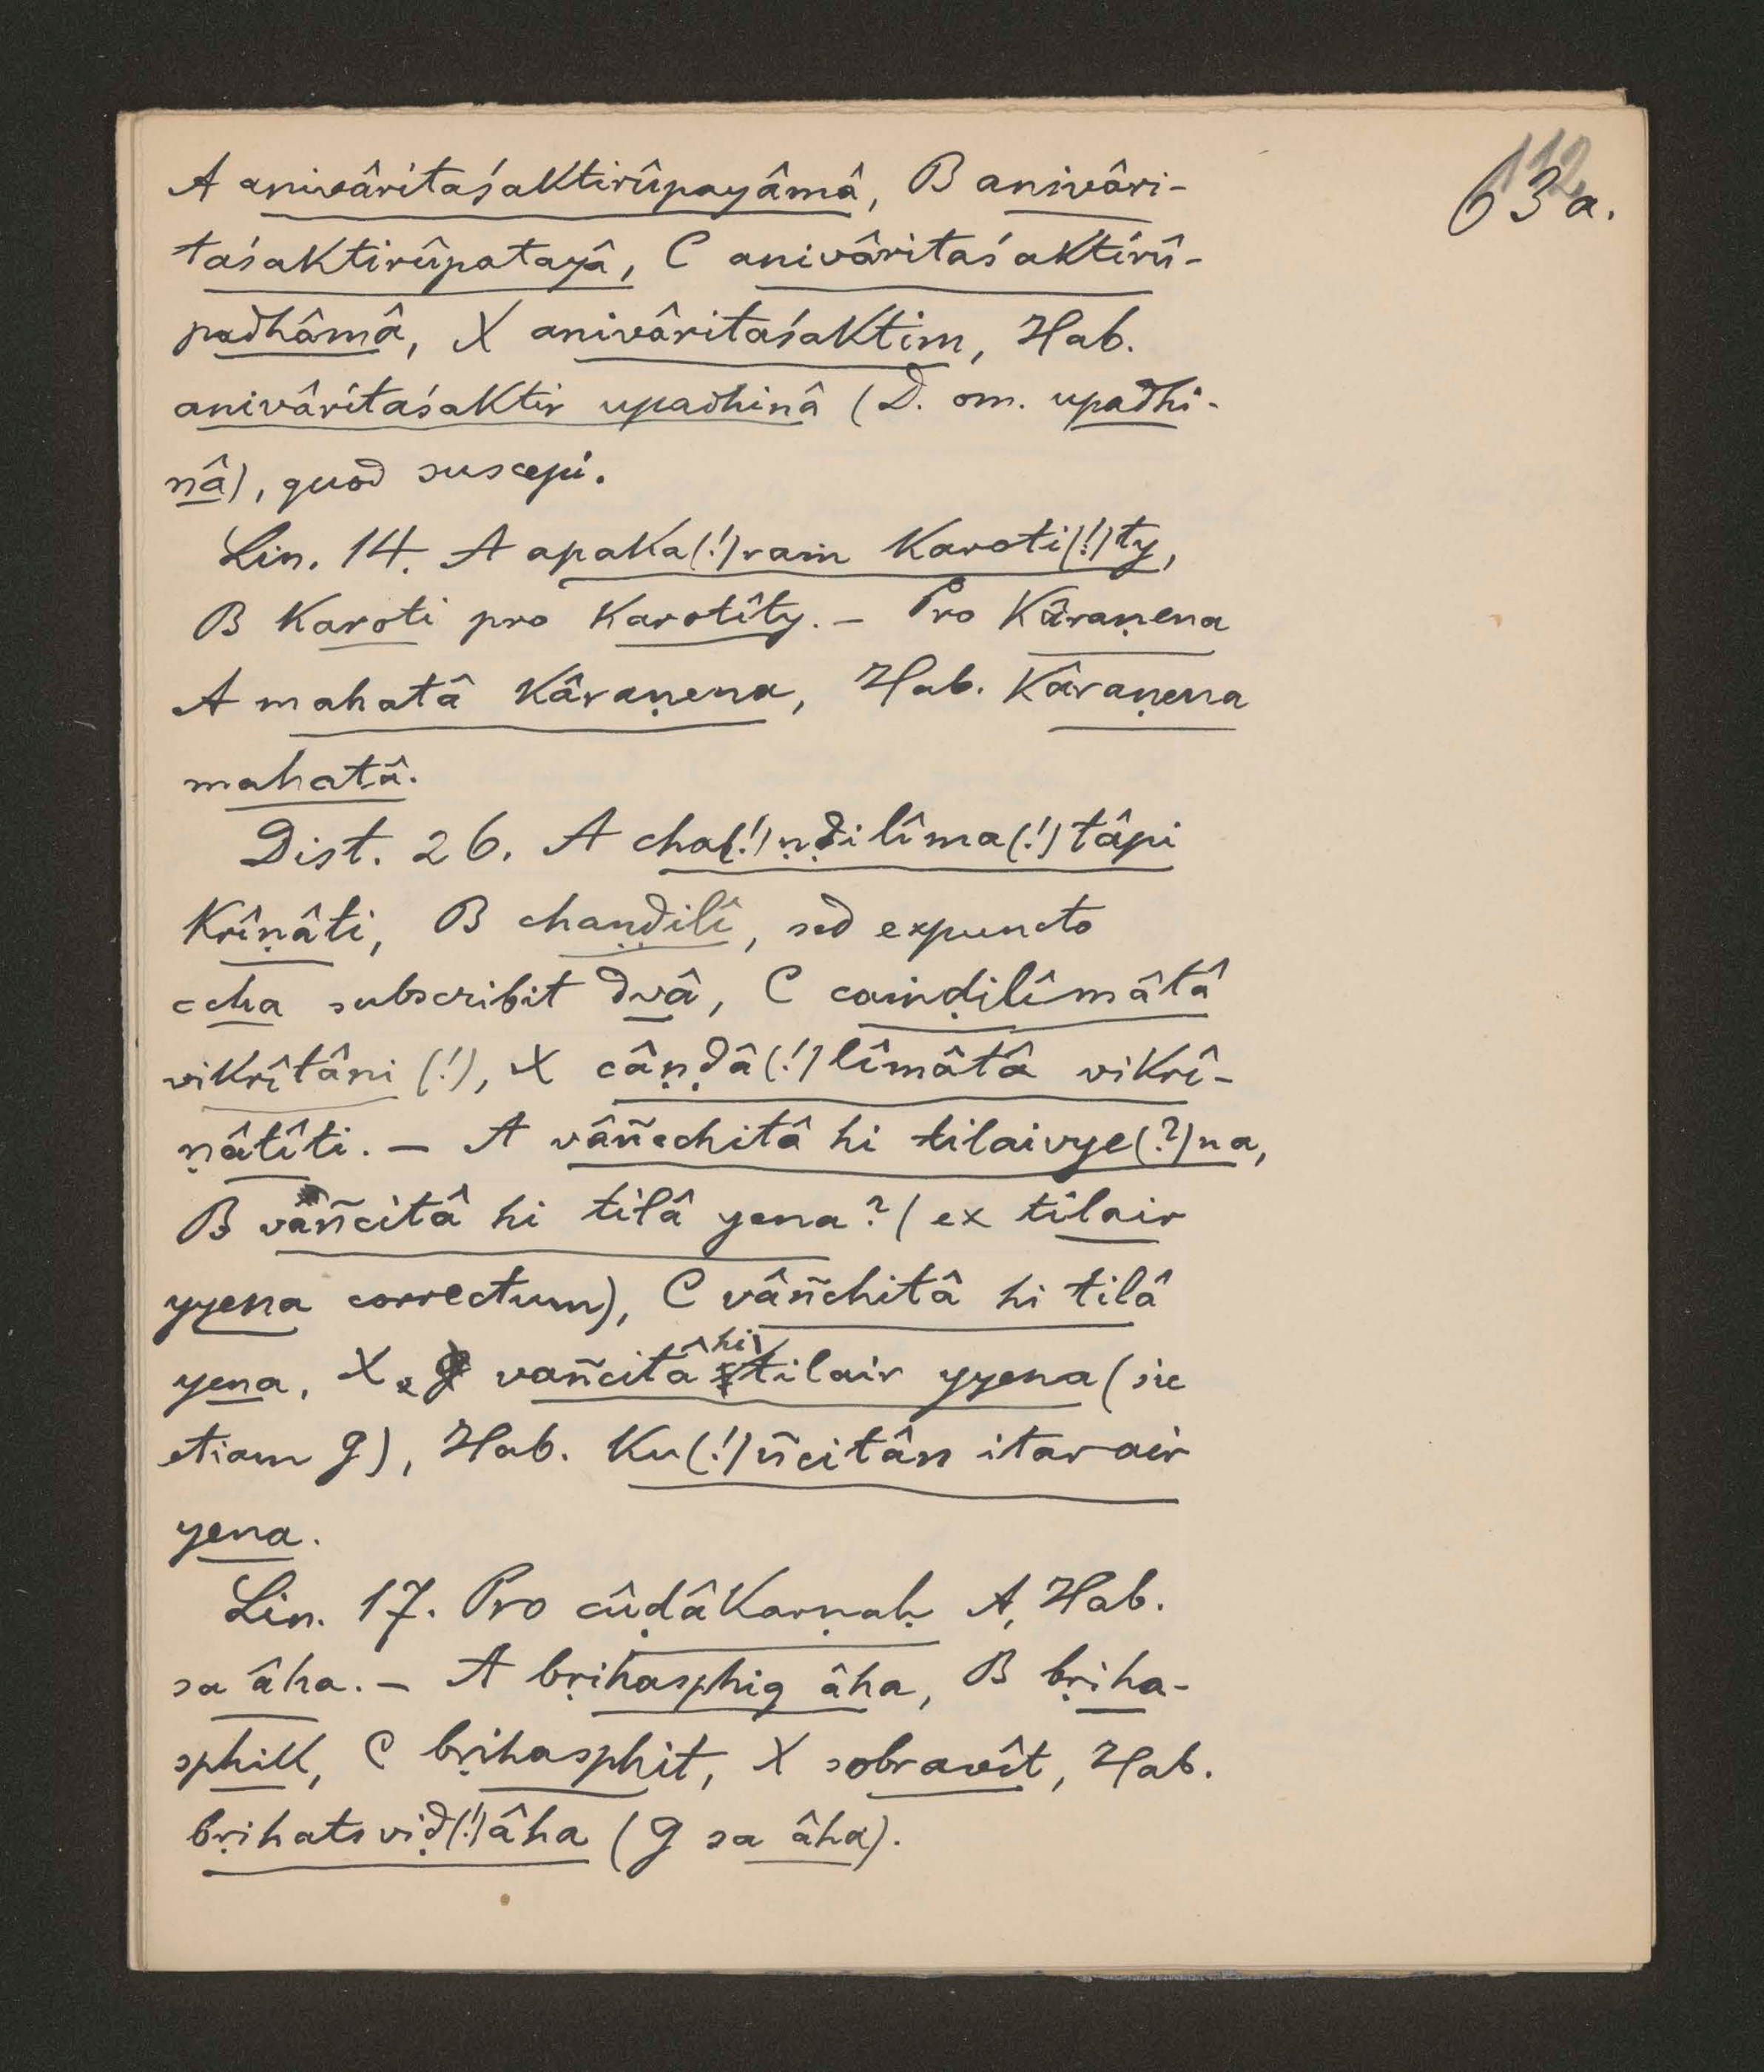 132
63a.
A anivâritaśaktirûpayâmâ, B anivâri-
taśaktirûpatayâ, C anivâritaśaktirû-
padhâmâ, X anivâritaśaktim, Hab.
anivâritaśaktir upadhinâ (D. om. upadhi-
nâ), quod suscepi.
Lin. 14. A apaka(!)raṁ karoti(!)ty,
B karoti pro karotîty. — Pro kâraṇena
A mahatâ kâraṇena, Hab. kâraṇena
mahatâ.
Dist. 26. A cha(!)ṇḍilîma(!)tâpi
krîṇâti, B chaṇḍilî, sed expuncto
ccha subscribit dvâ, C caṁḍilîmâtâ
vikrîtâni (!), X câṇḍâ(!)lîmâtâ vikrî-
ṇâtîti. — A vâñcchitâ hi tilaivye(?)na,
B vañcitâ hi tilâ yena? (ex tilair
yyena correctum), C vâñchitâ hi tilâ
yena, X vañcitâ hi tilair yyena (sic
etiam g), Hab. ku(!)ñcitân itarair
yena.
Lin. 17. Pro cûḍâkarṇaḥ A, Hab.
sa âha. — A bṛihasphig âha, B bṛiha-
sphik, C bṛihasphit, X sobravît, Hab.
bṛihatsviḍ(!)âha (g sa âha).